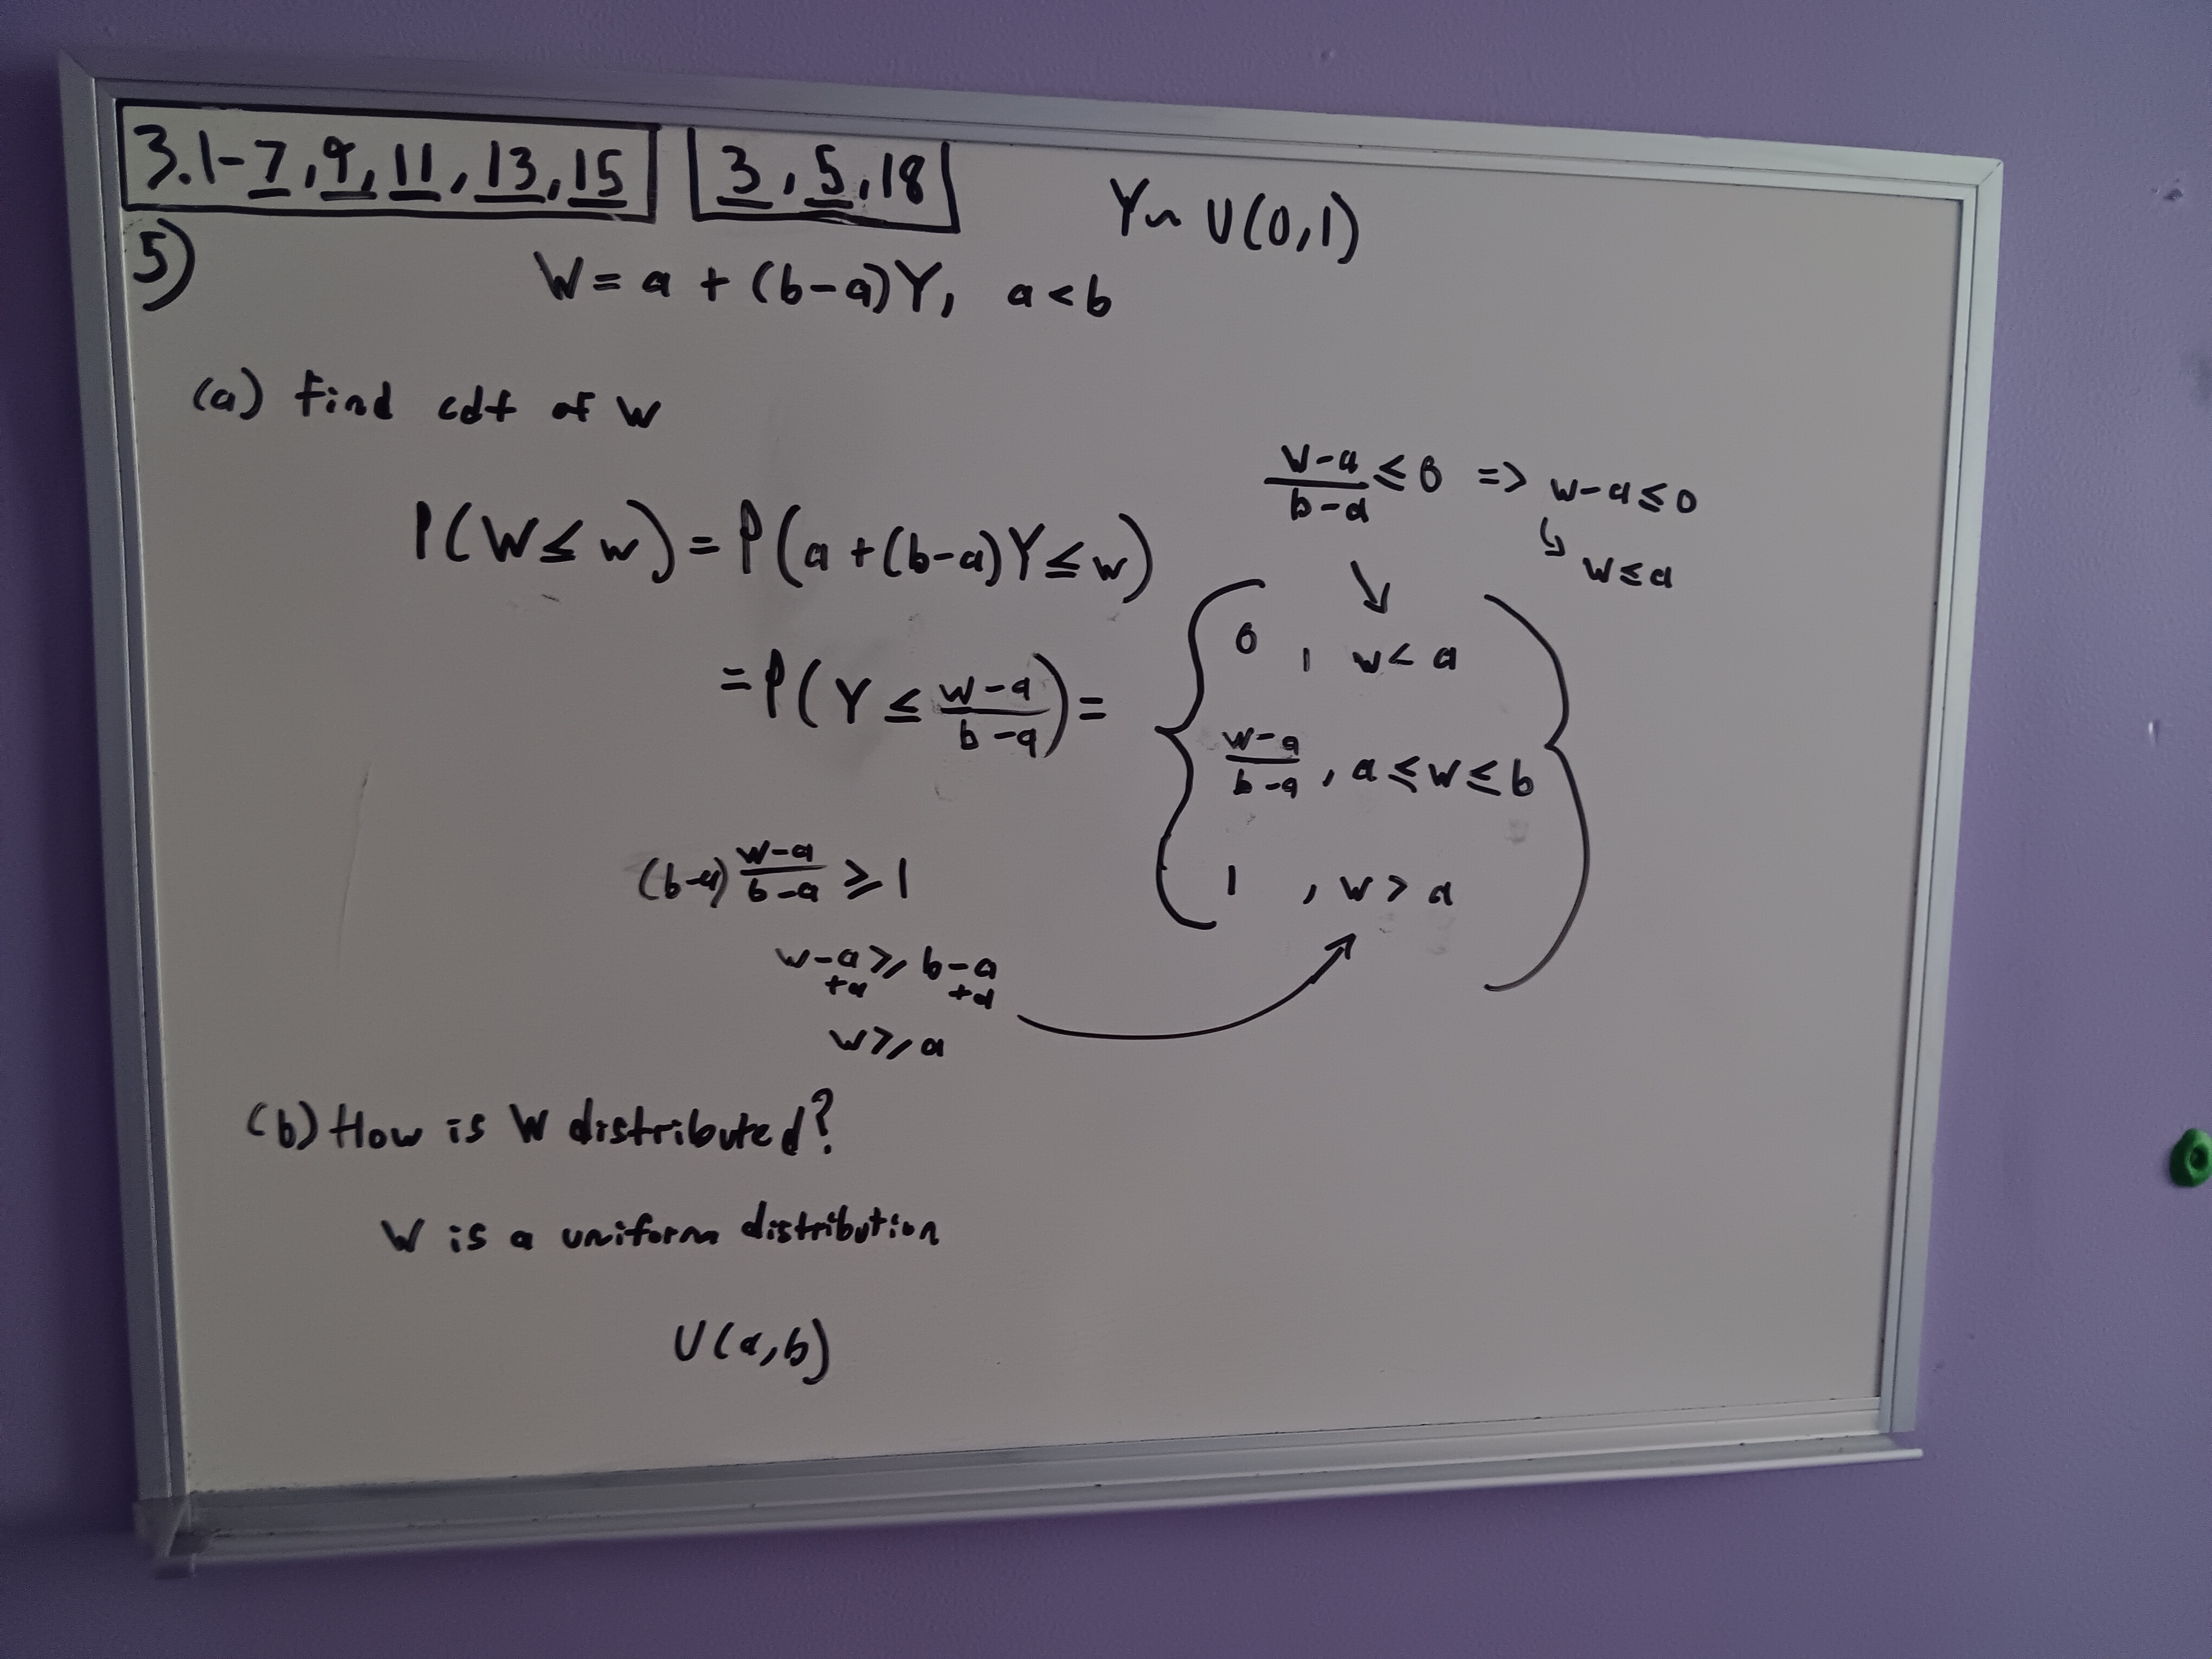 3.1-7, 9, 11, 13, 15   3, 5, 18
Y~ U(0,1)
5)
W = a + (b-a)Y, a < b
(a) find cdf of W
(w-a)/(b-a) ≤ 0 => w-a ≤ 0
↳ w ≤ a
P(W ≤ w) = P(a + (b-a)Y ≤ w)
= P(Y ≤ (w-a)/(b-a)) =
0 , w < a
(w-a)/(b-a) , a ≤ w ≤ b
1 , w > a
(b-a) (w-a)/(b-a) ≥ 1
w-a ≥ b-a
+a +a
w ≥ a
(b) How is W distributed?
W is a uniform distribution
U(a,b)